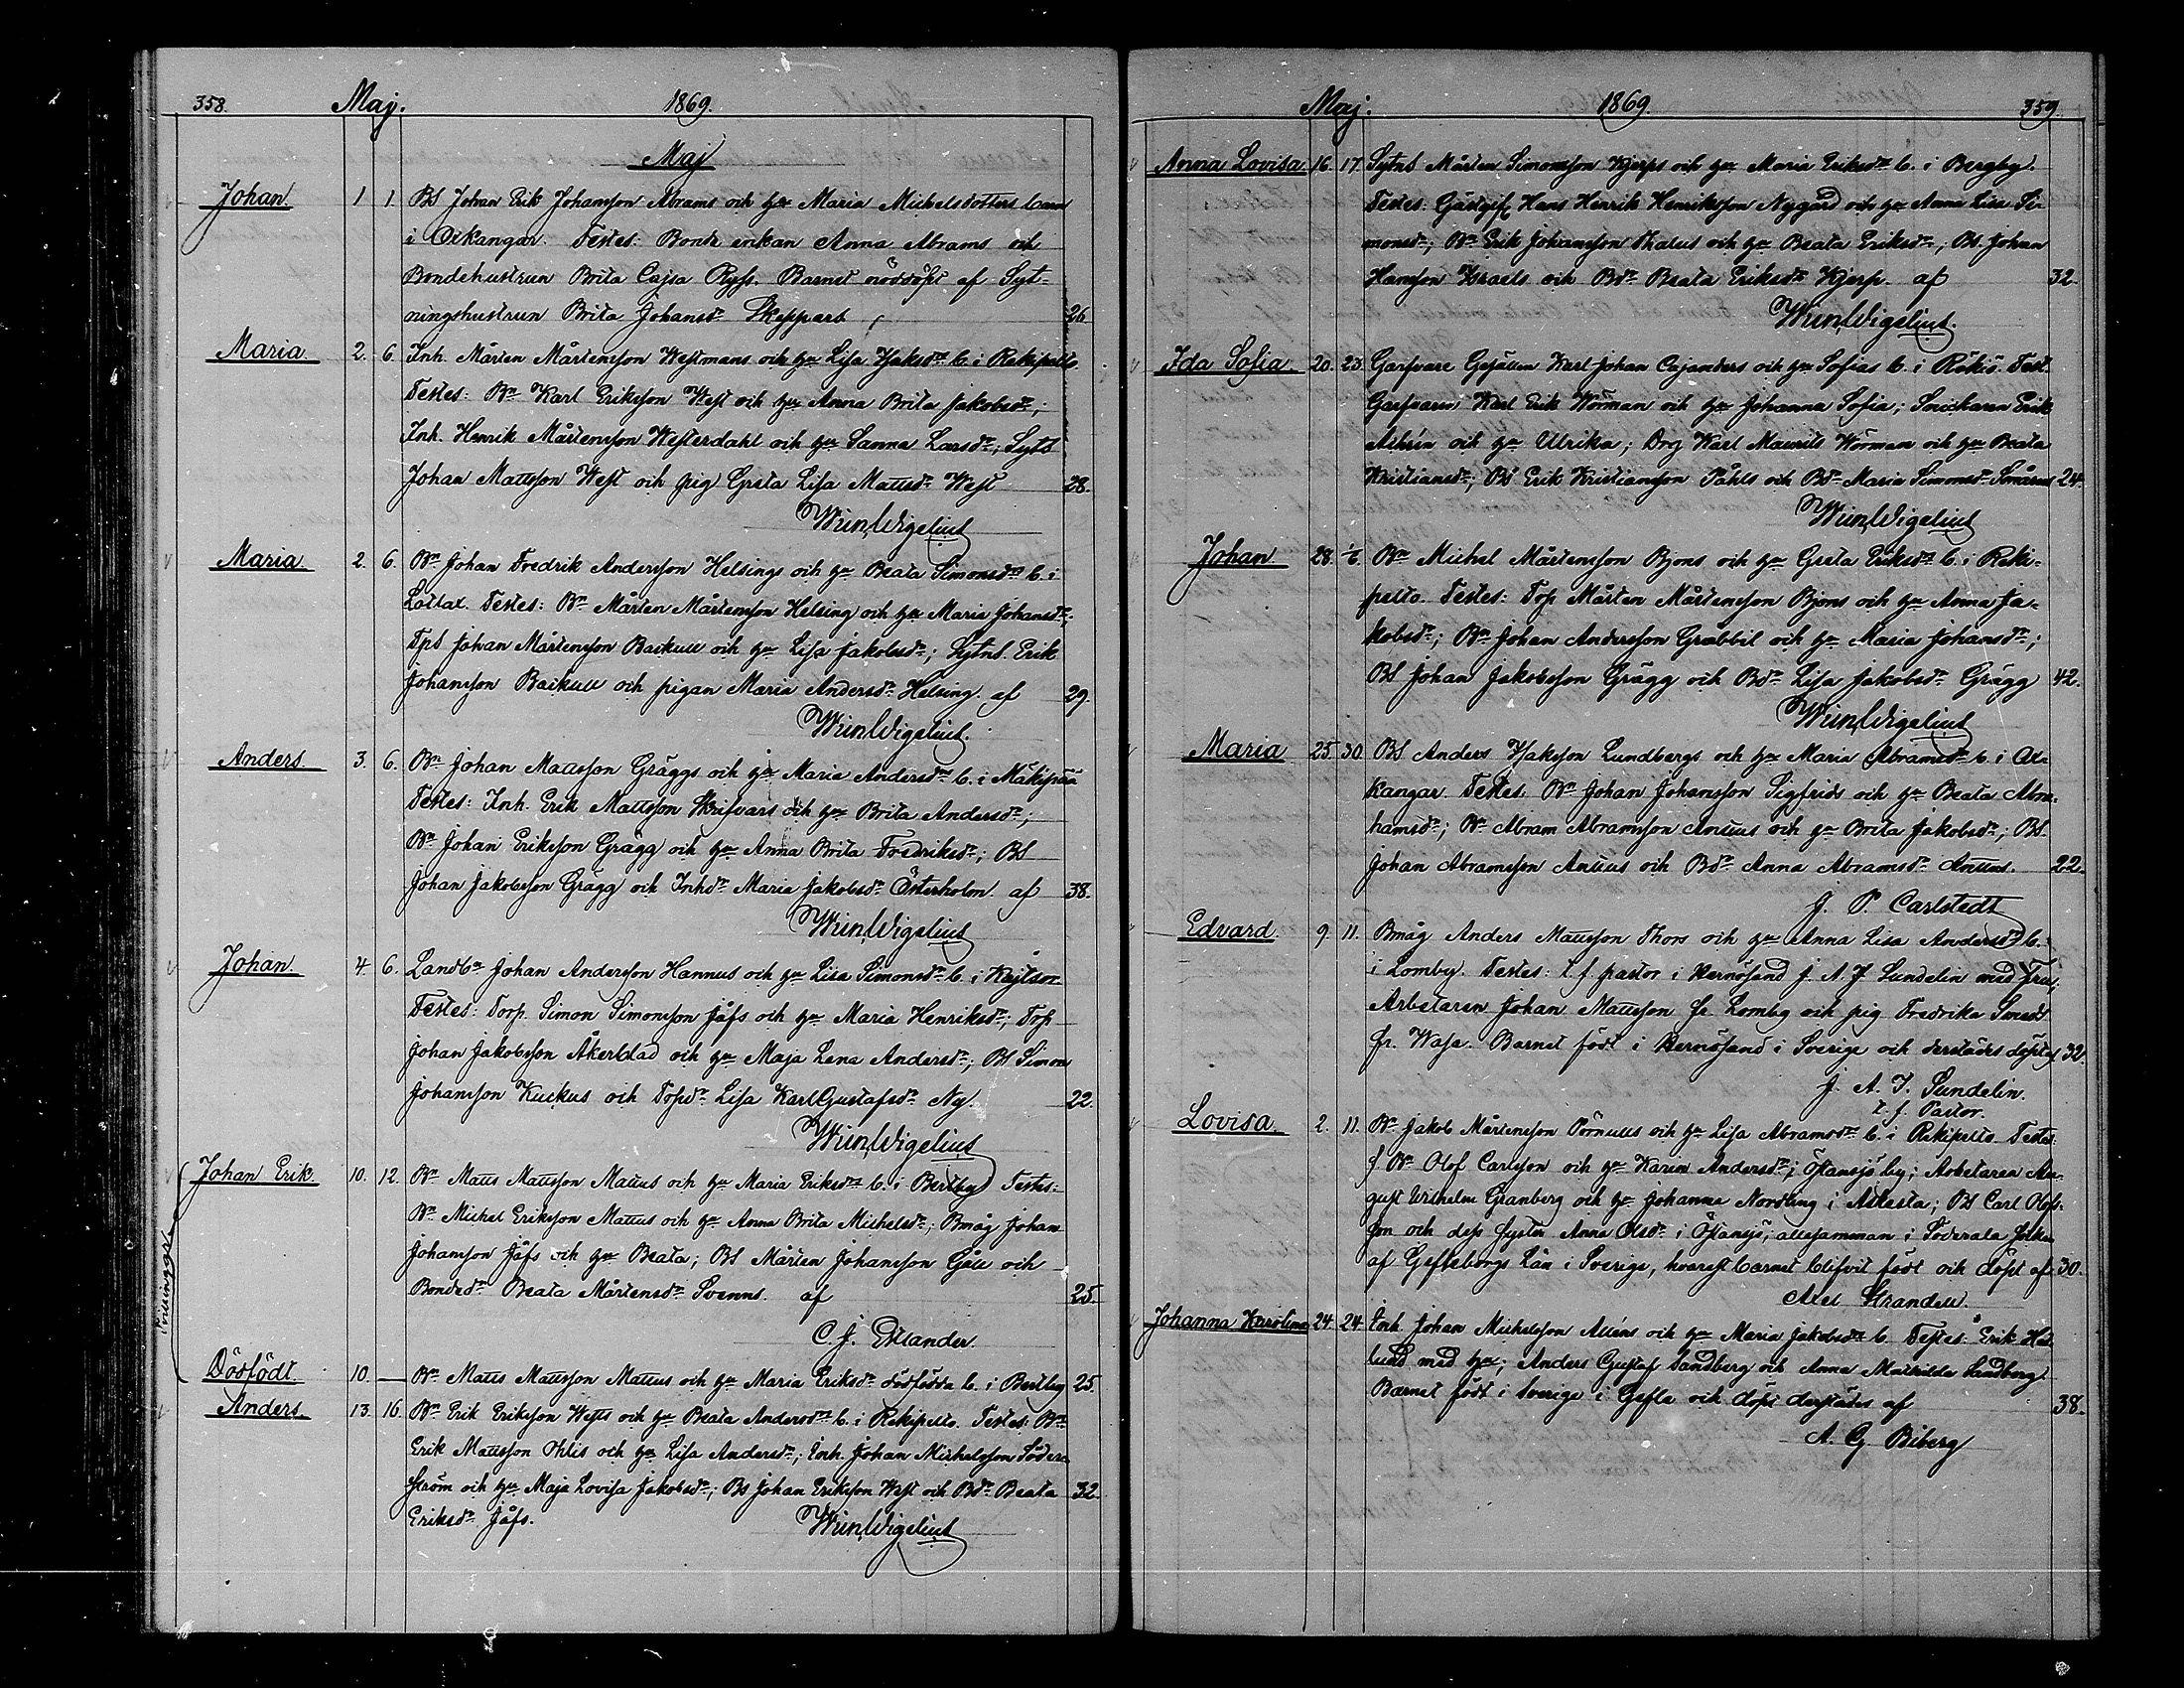 358. Maj. 1869.
Maj
Johan 1 1. BS Johan Erik Johansson Abrams och hu Maria Michelsdotters barn
i Oxkangar. Testes: Bonde enkan Anna Abrams och
Bondehustrun Brita Cajsa Ryss. Barnet nöddöpt af Syt-
ningshustrun Brita Johansdr Skeppars 26.
Maria 2. 6. Inh. Mårten Mårtensson Westmans och hu Lisa Isaksdrs b. i Rekipelto.
Testes: Bn Karl Eriksson West och hu Anna Brita Jakobsdr;
Inh. Henrik Mårtensson Westerdahl och hu Sanna Larsdr; Sytns
Johan Mattsson West och pig Greta Lisa Mattsdr West 28.
Wigelius
Maria 2. 6. Bn Johan Fredrik Andersson Helsings och hu Beata Simonsdrs b. i
Lottax. Testes: Bn Mårten Mårtensson Helsing och hu Maria Johansdr;
TpS Johan Mårtensson Backull och hu Lisa Jakobsdr; Sytns. Erik
Johansson Backull och pigan Maria Andersdr Helsing. af 29.
Wigelius.
Anders 3. 6. Bn Johan Mattsson Gräggs och hu Maria Andersdrs b. i Mäkipää
Testes: Inh. Erik Mattsson Skrifvars och hu Brita Andersdr;
Bn Johan Eriksson Grägg och hu Anna Brita Fredriksdr; BS
Johan Jakobsson Grägg och Inhdr Maria Jakobsdr Österholm. af 38.
Wigelius
Johan. 4. 6. Landbn Johan Andersson Hannus och hu Lisa Simonsdrs b. i Kajtsor
Testes: Torp. Simon Simonsson Jåfs och hu Maria Henriksdr; Torp
Johan Jakobsson Åkerblad och hu Maja Lena Andersdr; BS Simon
Johansson Kuckus och Topdr Lisa Karl Gustafsdr Ny. 22.
Wigelius
Johan Erik. 10. 12. Bn Matts Mattsson Mattus och hu Maria Eriksdrs b. i Bertby Testes:
Bn Michel Eriksson Mattus och hu Anna Brita Michelsdr; Bmåg Johan
Johansson Jåfs och hu Beata; BS Mårten Johansson Gåll och
Bondedr Beata Mårtensdr Svenns. af 25.
Tvillinggr
C. J. Estlander.
Dödfödt. 10. — Bn Matts Mattsson Mattus och hu Maria Eriksdr dödfödda b. i Bertby 25.
Anders. 13. 16. Bn Erik Eriksson Wests och hu Beata Andersdrs b. i Rekipelto. Testes: Bn
Erik Mattsson Ohlis och hu Lisa Andersdr; Inh. Johan Michelsson Söder-
ström och hu Maja Lovisa Jakobsdr; Bs Johan Eriksson West och Bdr Beata 32.
Eriksdr Jåfs. Wigelius
Maj. 1869. 359.
Anna Lovisa. 16. 17. Sytns Mårten Simonsson Kjerps och hu Maria Eriksdrs b. i Bergby.
Testes: Gästgif Hans Henrik Henriksson Nygård och hu Anna Lisa Si-
monsdr; Bn Erik Johansson Thalus och hu Beata Eriksdr; BS. Johan
Hansson Israels och Bdr Beata Eriksdr Kjerp. af 32.
Wigelius.
Ida Sofia. 20. 23. Garfvare Gesällen Karl Johan Cajanders och hu Sofias b. i Rökiö. Test.
Garfvaren Karl Erik Wörman och hu Johanna Sofia; Snickaren Erik
Ahlrén och hu Ulrika; Drg Karl Maurits Wörman och hu Beata
Kristiansdr; BS Erik Kristiansson Påhls och Bdr Maria Simonsdr Smårus 24.
Wigelius
Johan 28. 1/6 Bn Michel Mårtensson Bjons och hu Greta Eriksdrs b. i Reki-
pelto. Testes: Top Mårten Mårtensson Bjons och hu Anna Ja-
kobsdr; Bn Johan Andersson Grabbil och hu Maria Johansdr;
BS Johan Jakobsson Grägg och Bdr Lisa Jakobsdr Grägg 42.
Wigelius
Maria 25. 30. BS Anders Isaksson Lundbergs och hu Maria Abramsdr b. i Ox-
kangar Testes. Bn Johan Johansson Sigfrids och hu Beata Abra-
hamsdr; Bn Abram Abramsson Anttus och hu Brita Jakobsdr; BS.
Johan Abramsson Anttus och Bdr Anna Abramsdr Anttus. 22.
J. P. Carlstedt
Edvard. 9. 11. Bmåg Anders Mattsson Thors och hu Anna Lisa Andersdrs b.
i Lomby. Testes: t. f. pastor i Hernösand J. A. T. Sundelin med Fru;
Arbetaren Johan Mattsson fr Lomby och pig Fredrika Smeds
fr. Wasa. Barnet födt i Hernösand i Sverige och derstädes döpt af 32.
J. A. T. Sundelin.
t. f. Pastor.
Lovisa. 2. 11. Bn Jakob Mårtensson Pörnulls och hu Lisa Abramsdrs b. i Rekipelto. Testes:
f Bn Olof Carlsson och hu Karin Andersdr; Östansjö by; Arbetaren Au-
gust Wilhelm Granberg och hu Johanna Nordling i Astasta; BS Carl Olofs-
son och dess syster Anna Olsdr i Östansjö, allesamman i Söderala socken
af Gefleborgs Län i Sverige, hvarest barnet blifvit födt och döpt af 30.
Axel Strandell.
Johanna Karolina 24. 24. Inh. Johan Michelsson Alléns och hu Maria Jakobsdrs b. Testes: Erik Hed-
lund med hu; Anders Gustaf Sandberg och Anna Mathilda Sandberg.
Barnet födt i Sverige i Gefle och döpt derstädes af 38.
A. G. Biberg